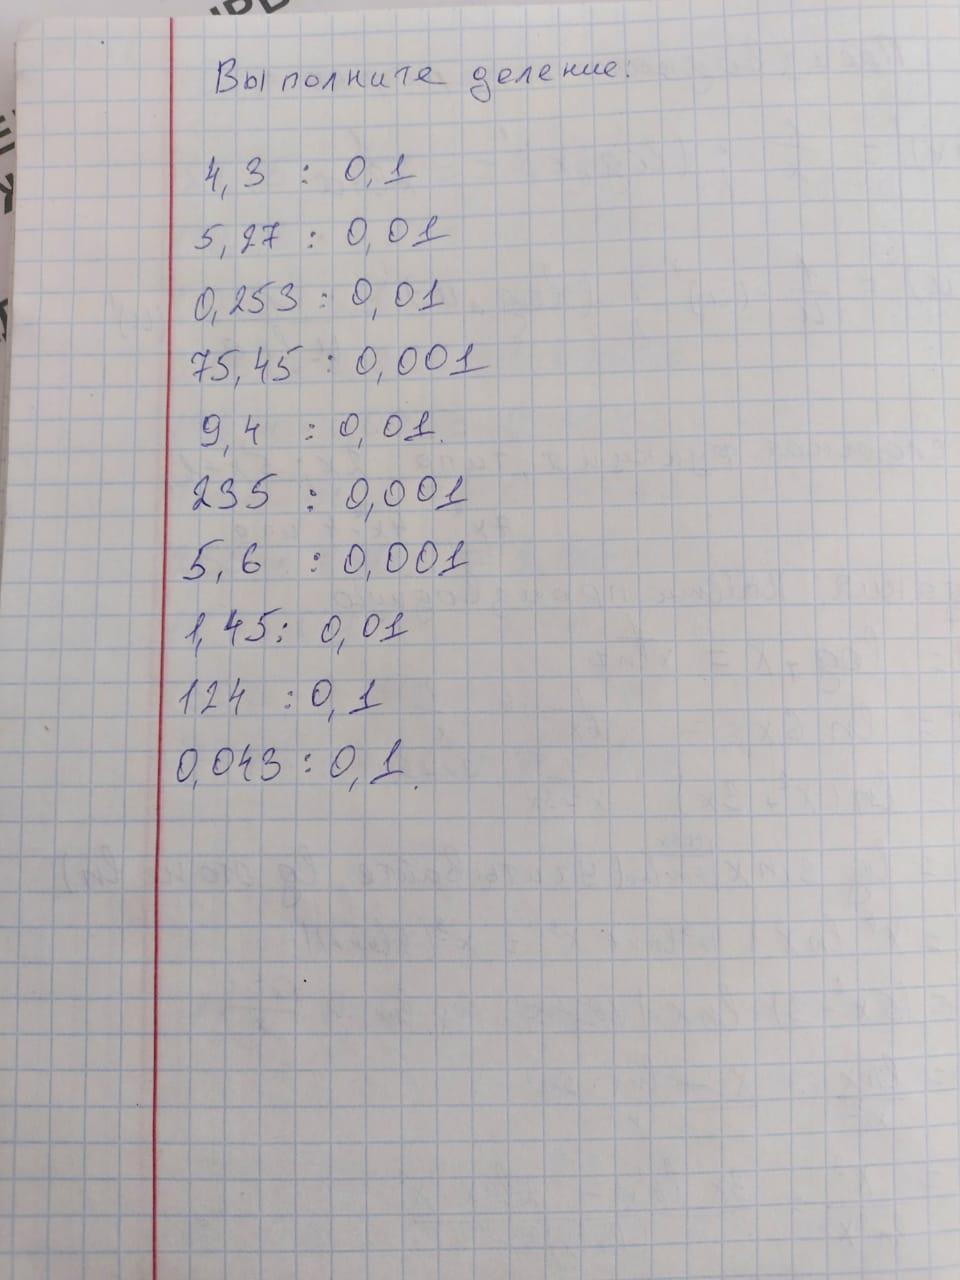 Выполните деление:
4,3 : 0,1
5,27 : 0,01
0,253 : 0,01
75,45 : 0,001
9,4 : 0,01.
235 : 0,001
5,6 : 0,001
1,45 : 0,01
124 : 0,1
0,043 : 0,1.